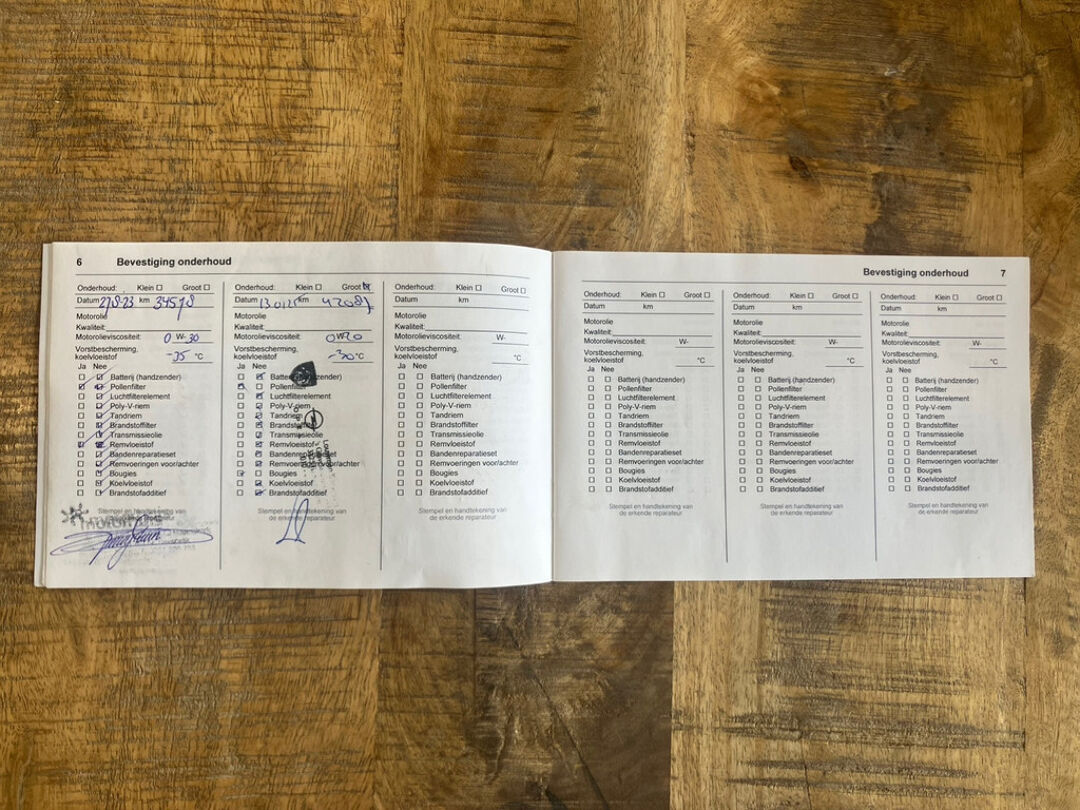 6 Bevestiging onderhoud
Onderhoud: Klein ☐ Groot ☐
Datum 27-8-23 km 34518
Motorolie
Kwaliteit:
Motorolieviscositeit: 0 W- 30
Vorstbescherming,
koelvloeistof -35 °C
Ja Nee
Batterij (handzender)
Pollenfilter
Luchtfilterelement
Poly-V-riem
Tandriem
Brandstoffilter
Transmissieolie
Remvloeistof
Bandenreparatieset
Remvoeringen voor/achter
Bougies
Koelvloeistof
Brandstofadditief
Stempel en handtekening van
Onderhoud: Klein ☐ Groot ☒
Datum 13 01 25 km
Motorolie
Kwaliteit:
Motorolieviscositeit: 0W20
Vorstbescherming,
koelvloeistof -30 °C
Ja Nee
Pollenfilter
Luchtfilterelement
Poly-V-riem
Tandriem
Brandstoffilter
Transmissieolie
Remvloeistof
Bandenreparatieset
Remvoeringen voor/achter
Bougies
Koelvloeistof
Brandstofadditief
Stempel en handtekening van
de erkende reparateur
Onderhoud: Klein ☐ Groot ☐
Datum km
Motorolie
Kwaliteit:
Motorolieviscositeit: W-
Vorstbescherming,
koelvloeistof °C
Ja Nee
Batterij (handzender)
Pollenfilter
Luchtfilterelement
Poly-V-riem
Tandriem
Brandstoffilter
Transmissieolie
Remvloeistof
Bandenreparatieset
Remvoeringen voor/achter
Bougies
Koelvloeistof
Brandstofadditief
Stempel en handtekening van
de erkende reparateur
Bevestiging onderhoud 7
Onderhoud: Klein ☐ Groot ☐
Datum km
Motorolie
Kwaliteit:
Motorolieviscositeit: W-
Vorstbescherming,
koelvloeistof °C
Ja Nee
Batterij (handzender)
Pollenfilter
Luchtfilterelement
Poly-V-riem
Tandriem
Brandstoffilter
Transmissieolie
Remvloeistof
Bandenreparatieset
Remvoeringen voor/achter
Bougies
Koelvloeistof
Brandstofadditief
Stempel en handtekening van
de erkende reparateur
Onderhoud: Klein ☐ Groot ☐
Datum km
Motorolie
Kwaliteit:
Motorolieviscositeit: W-
Vorstbescherming,
koelvloeistof °C
Ja Nee
Batterij (handzender)
Pollenfilter
Luchtfilterelement
Poly-V-riem
Tandriem
Brandstoffilter
Transmissieolie
Remvloeistof
Bandenreparatieset
Remvoeringen voor/achter
Bougies
Koelvloeistof
Brandstofadditief
Stempel en handtekening van
de erkende reparateur
Onderhoud: Klein ☐ Groot ☐
Datum km
Motorolie
Kwaliteit:
Motorolieviscositeit: W-
Vorstbescherming,
koelvloeistof °C
Ja Nee
Batterij (handzender)
Pollenfilter
Luchtfilterelement
Poly-V-riem
Tandriem
Brandstoffilter
Transmissieolie
Remvloeistof
Bandenreparatieset
Remvoeringen voor/achter
Bougies
Koelvloeistof
Brandstofadditief
Stempel en handtekening van
de erkende reparateur